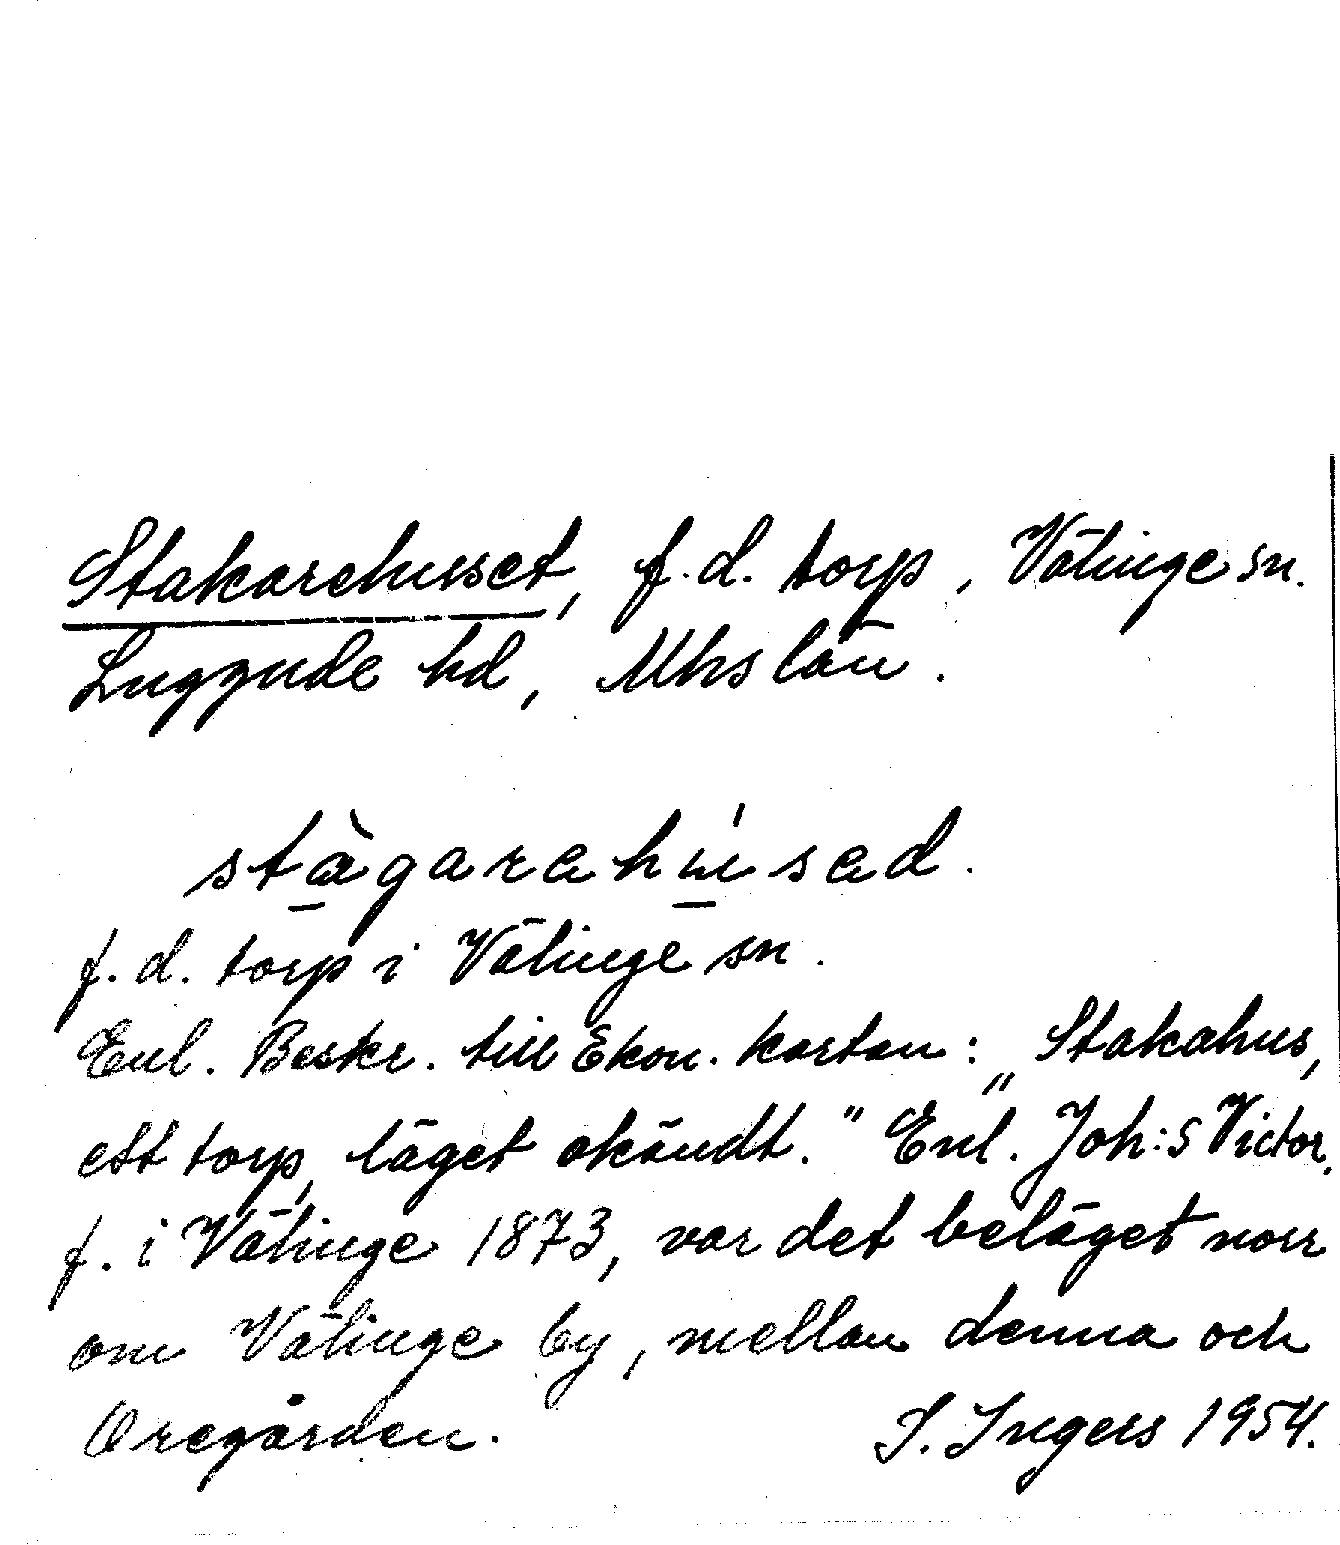 Stakarehuset, f.d. torp, Välinge sn.
Luggude hd, Mhs län.
stàgarahúsad.
f.d. torp i Välinge sn.
Enl. Beskr. till Ekon. kartan: „Stakahus,
ett torp, läget okändt." Enl. Joh:s Victor,
f. i Välinge 1873, var det beläget norr
om Välinge by, mellan denna och
Oregården. S. Ingers 1954.